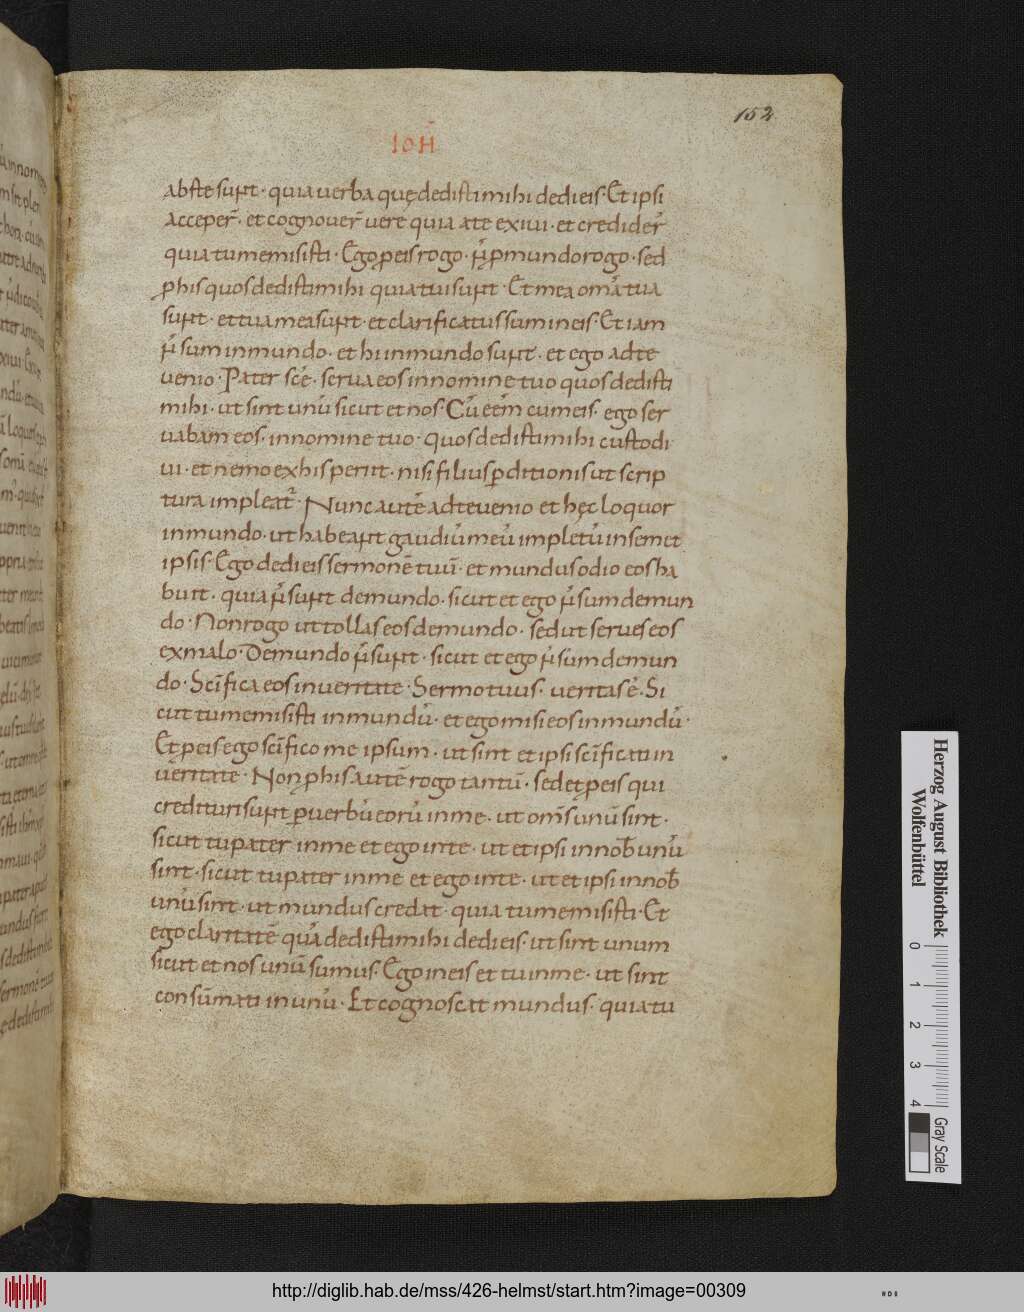 152
IOH̄
abs te sunt · quia verba quę dedisti mihi dedi eis · Et ipsi
acceper̄ · et cognover̄ vere quia a te exivi · et credider̄
quia tu me misisti · Ego ꝓ eis rogo · n̄ ꝓ mundo rogo · sed
ꝓ his quos dedisti mihi quia tui sunt · Et mea om̄a tua
sunt · et tua mea sunt · et clarificatus sum in eis · Et iam
n̄ sum in mundo · et hi in mundo sunt · et ego ad te
venio · Pater sc̄e · serva eos in nomine tuo quos dedisti
mihi · ut sint unū sicut et nos · Cū eēm cum eis · ego ser
vabam eos · in nomine tuo · quos dedisti mihi custodi
vi · et nemo ex his periit · nisi filius ꝑditionis ut scrip
tura impleat᷑ · Nunc autē ad te venio et hęc loquor
in mundo · ut habeant gaudiū meū impletū in semet
ipsis · Ego dedi eis sermonē tuū · et mundus odio eos ha
buit · quia n̄ sunt de mundo · sicut et ego n̄ sum de mun
do · Non rogo ut tollas eos de mundo · sed ut serves eos
ex malo · De mundo n̄ sunt · sicut et ego n̄ sum de mun
do · Sc̄ifica eos in veritate · Sermo tuus · veritas ē · Si
cut tu me misisti in mundū · et ego misi eos in mundū ·
Et ꝓ eis ego sc̄ifico me ipsum · ut sint et ipsi sc̄ificati in
veritate · Non ꝓ his autē rogo tantū · sed et ꝓ eis qui
credituri sunt ꝑ verbū eorū in me · ut om̄s unū sint ·
sicut tu pater in me et ego in te · ut et ipsi in nob̄ unū
sint · sicut tu pater in me et ego in te · ut et ipsi in nob̄
unū sint · ut mundus credat · quia tu me misisti · Et
ego claritatē quā dedisti mihi dedi eis · ut sint unum
sicut et nos unū sumus · Ego in eis et tu in me · ut sint
consūmati in unū · Et cognoscat mundus · quia tu
Herzog August Bibliothek
Wolfenbüttel
0 1 2 3 4
Gray Scale
http://diglib.hab.de/mss/426-helmst/start.htm?image=00309